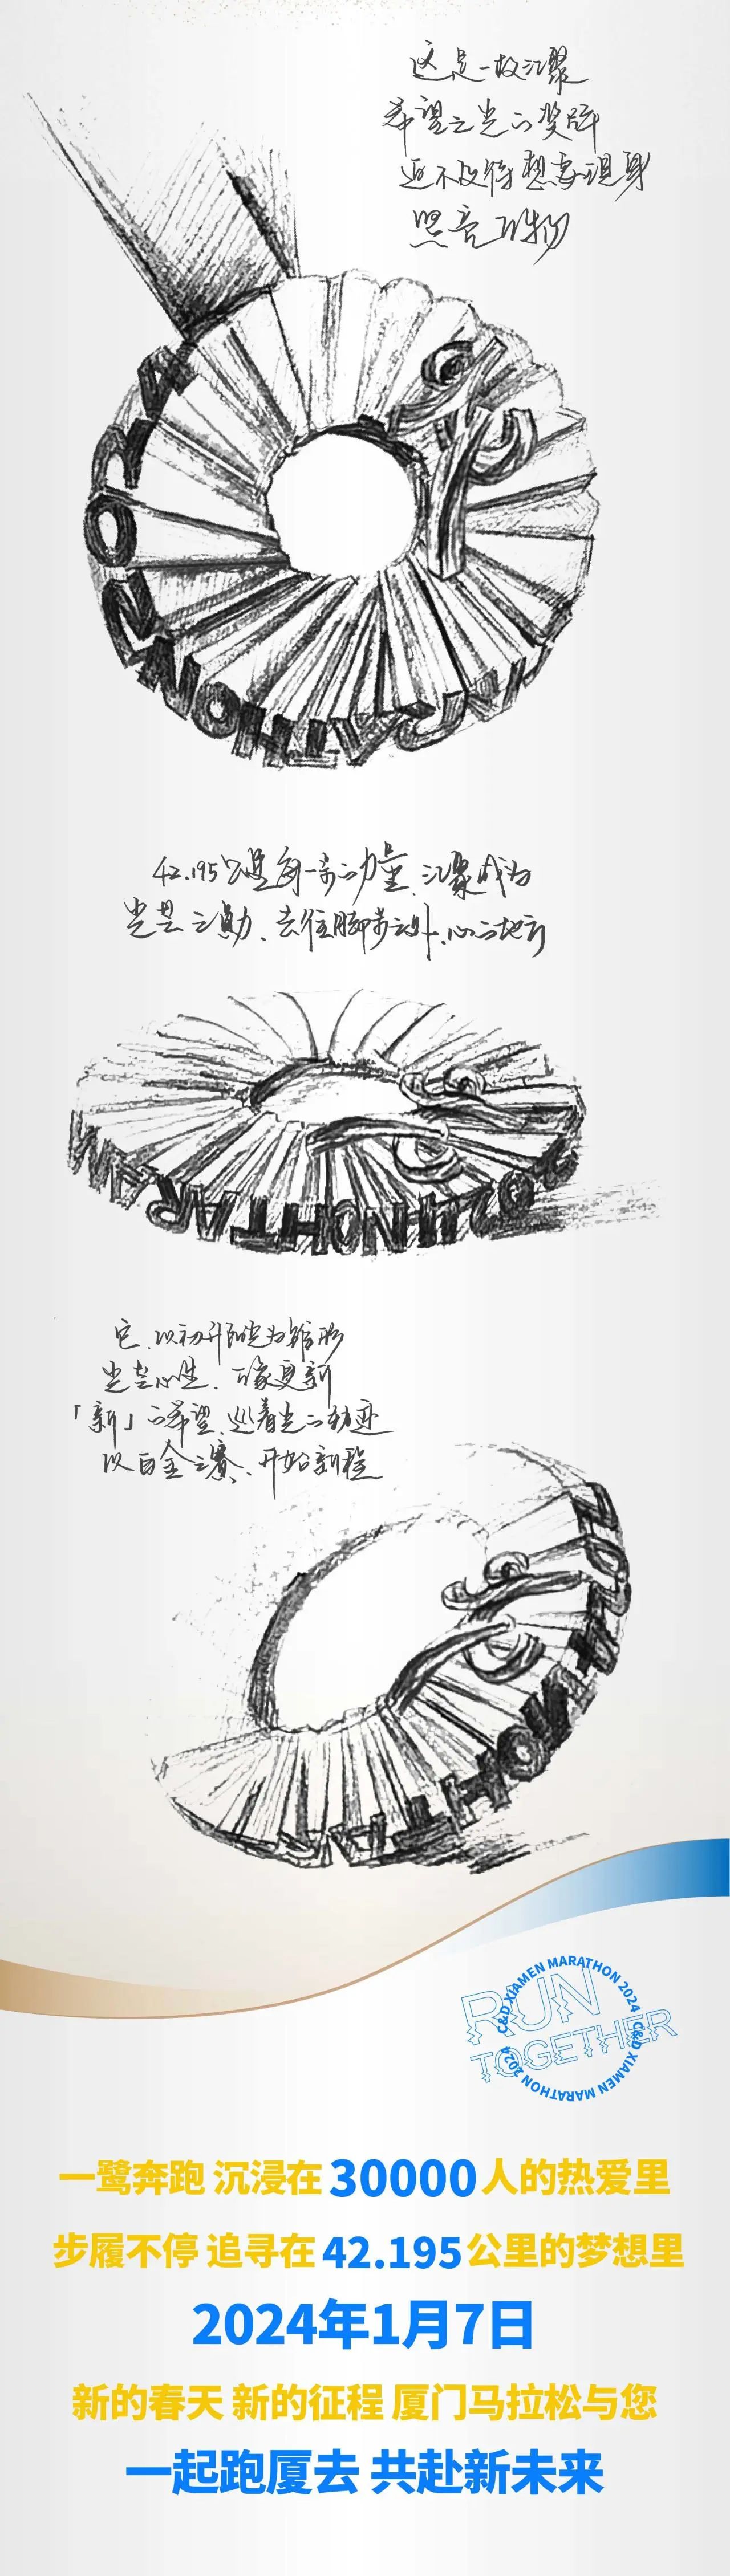 这是一枚汇聚
希望之光的奖牌
迫不及待想要现身
照亮万物
MARATHON
42.195公里每一步的力量，汇聚成为
光芒之勋，去往脚步之外，心之地方
MARATHON 202
它，以初升阳光为雏形
光芒心生，万象更新
「新」的希望，巡着光的轨迹
以白金之赛，开始新程
MARATHON
RUN
TOGETHER
C&D XIAMEN MARATHON 2024 C&D XIAMEN MARATHON 2024
一鹭奔跑 沉浸在30000人的热爱里
步履不停 追寻在42.195公里的梦想里
2024年1月7日
新的春天 新的征程 厦门马拉松与您
一起跑厦去 共赴新未来